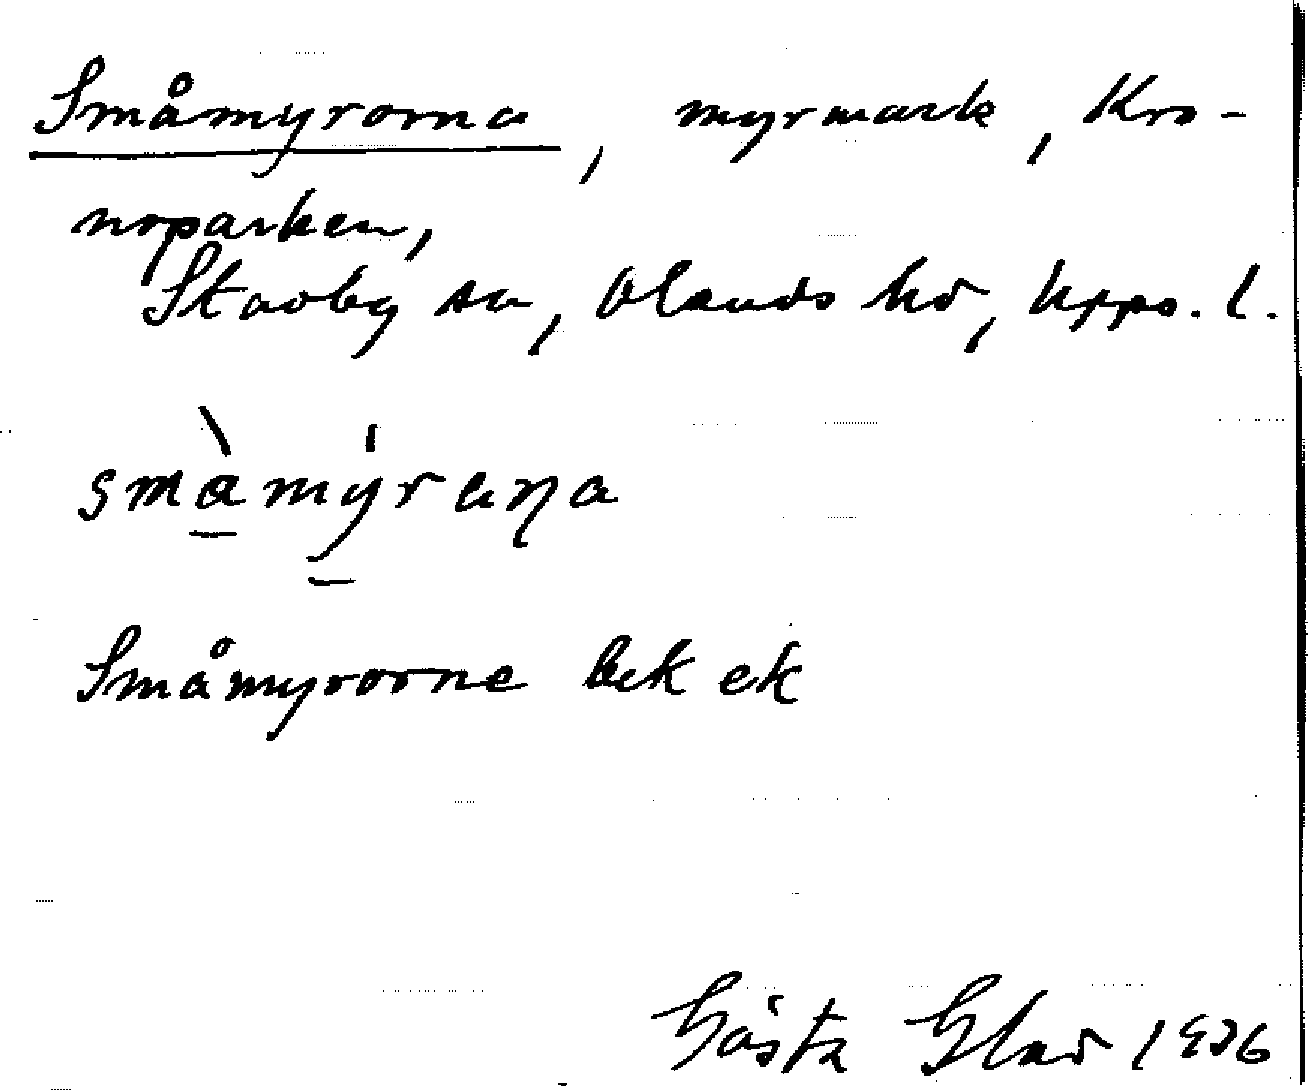 Småmyrorna, myrmark, Kro-
noparken,
Stavby sn, Olands hd, Upps. l.
småmyrana
Småmyrorne bek ek
Gösta Glad 1936